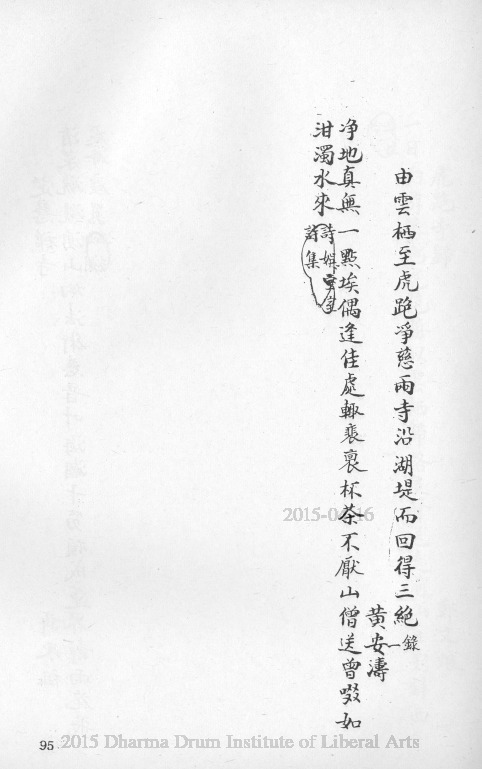 由雲栖至虎跑淨慈兩寺沿湖堤而回得三絕錄一
黃安濤
净地真無一點埃偶逢佳處輒裴褱杯茶不厭山僧送曾啜如
泔濁水來
詩娛室
詩集
2015-04-16
95
2015 Dharma Drum Institute of Liberal Arts